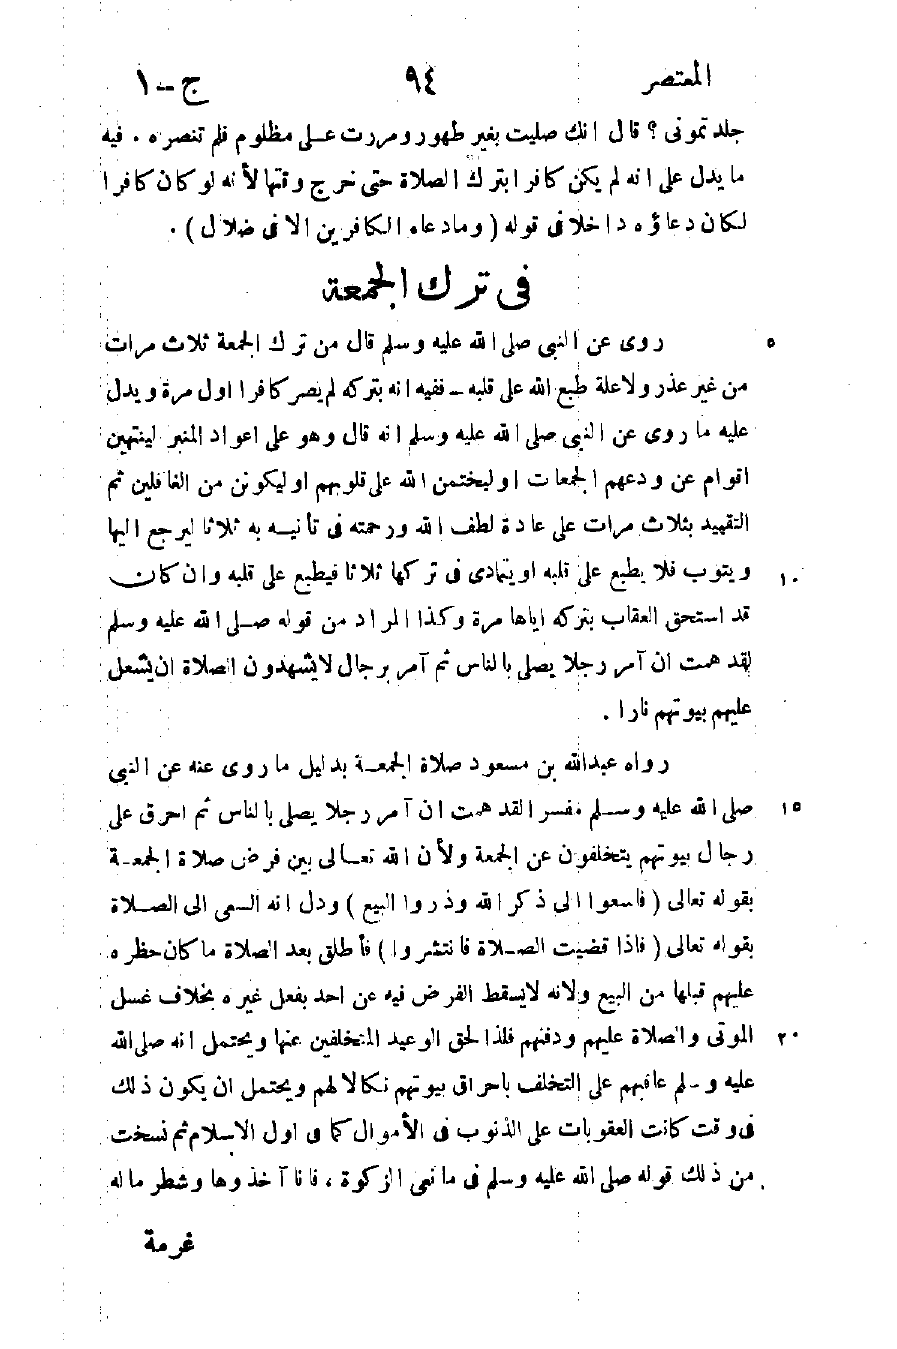 المعتصر ٩٤ ج-١
جلد تمونى؟ قال انك صليت بغير طهور ومررت على مظلوم فلم تنصره . فيه
ما يدل على انه لم يكن كافرا بترك الصلاة حتى خرج وقتها لأنه لو كان كافرا
لكان دعاؤه داخلا فى قوله (وما دعاء الكافرين الا فى ضلال) .
فى ترك الجمعة
روى عن النبى صلى الله عليه وسلم قال من ترك الجمعة ثلاث مرات ٥
من غير عذر ولا علة طبع الله على قلبه - ففيه انه بتركه لم يصر كافرا اول مرة ويدل
عليه ما روى عن النبى صلى الله عليه وسلم انه قال وهو على اعواد المنبر لينتهين
اقوام عن ودعهم الجمعات او ليختمن الله على قلوبهم او ليكونن من الغافلين ثم
التقييد بثلاث مرات على عادة لطف الله ورحمته فى تأنيه به ثلاثا ليرجع اليها
ويتوب فلا يطبع على قلبه او يتمادى فى تركها ثلاثا فيطبع على قلبه وان كان ١٠
قد استحق العقاب بتركه اياها مرة وكذا المراد من قوله صلى الله عليه وسلم
لقد همت ان آمر رجلا يصلى بالناس ثم آمر برجال لا يشهدون الصلاة ان يشعل
عليهم بيوتهم نارا .
رواه عبدالله بن مسعود صلاة الجمعة بدليل ما روى عنه عن النبى
صلى الله عليه وسلم مفسرا لقد همت ان آمر رجلا يصلى بالناس ثم احرق على ١٥
رجال بيوتهم يتخلفون عن الجمعة ولأن الله تعالى بين فرض صلاة الجمعة
بقوله تعالى (فاسعوا الى ذكر الله وذروا البيع) ودل انه السعى الى الصلاة
بقوله تعالى (فاذا قضيت الصلاة فانتشروا) فأطلق بعد الصلاة ما كان حظره
عليهم قبلها من البيع ولانه لا يسقط الفرض فيه عن احد بفعل غيره بخلاف غسل
الموتى والصلاة عليهم ودفنهم فلذا لحق الوعيد المتخلفين عنها ويحتمل انه صلى الله ٢٠
عليه وسلم عاقبهم على التخلف باحراق بيوتهم نكالا لهم ويحتمل ان يكون ذلك
فى وقت كانت العقوبات على الذنوب فى الأموال كما فى اول الاسلام ثم نسخت
من ذلك قوله صلى الله عليه وسلم فى مانعى الزكوة ، فانا آخذوها وشطر ماله
غرمة